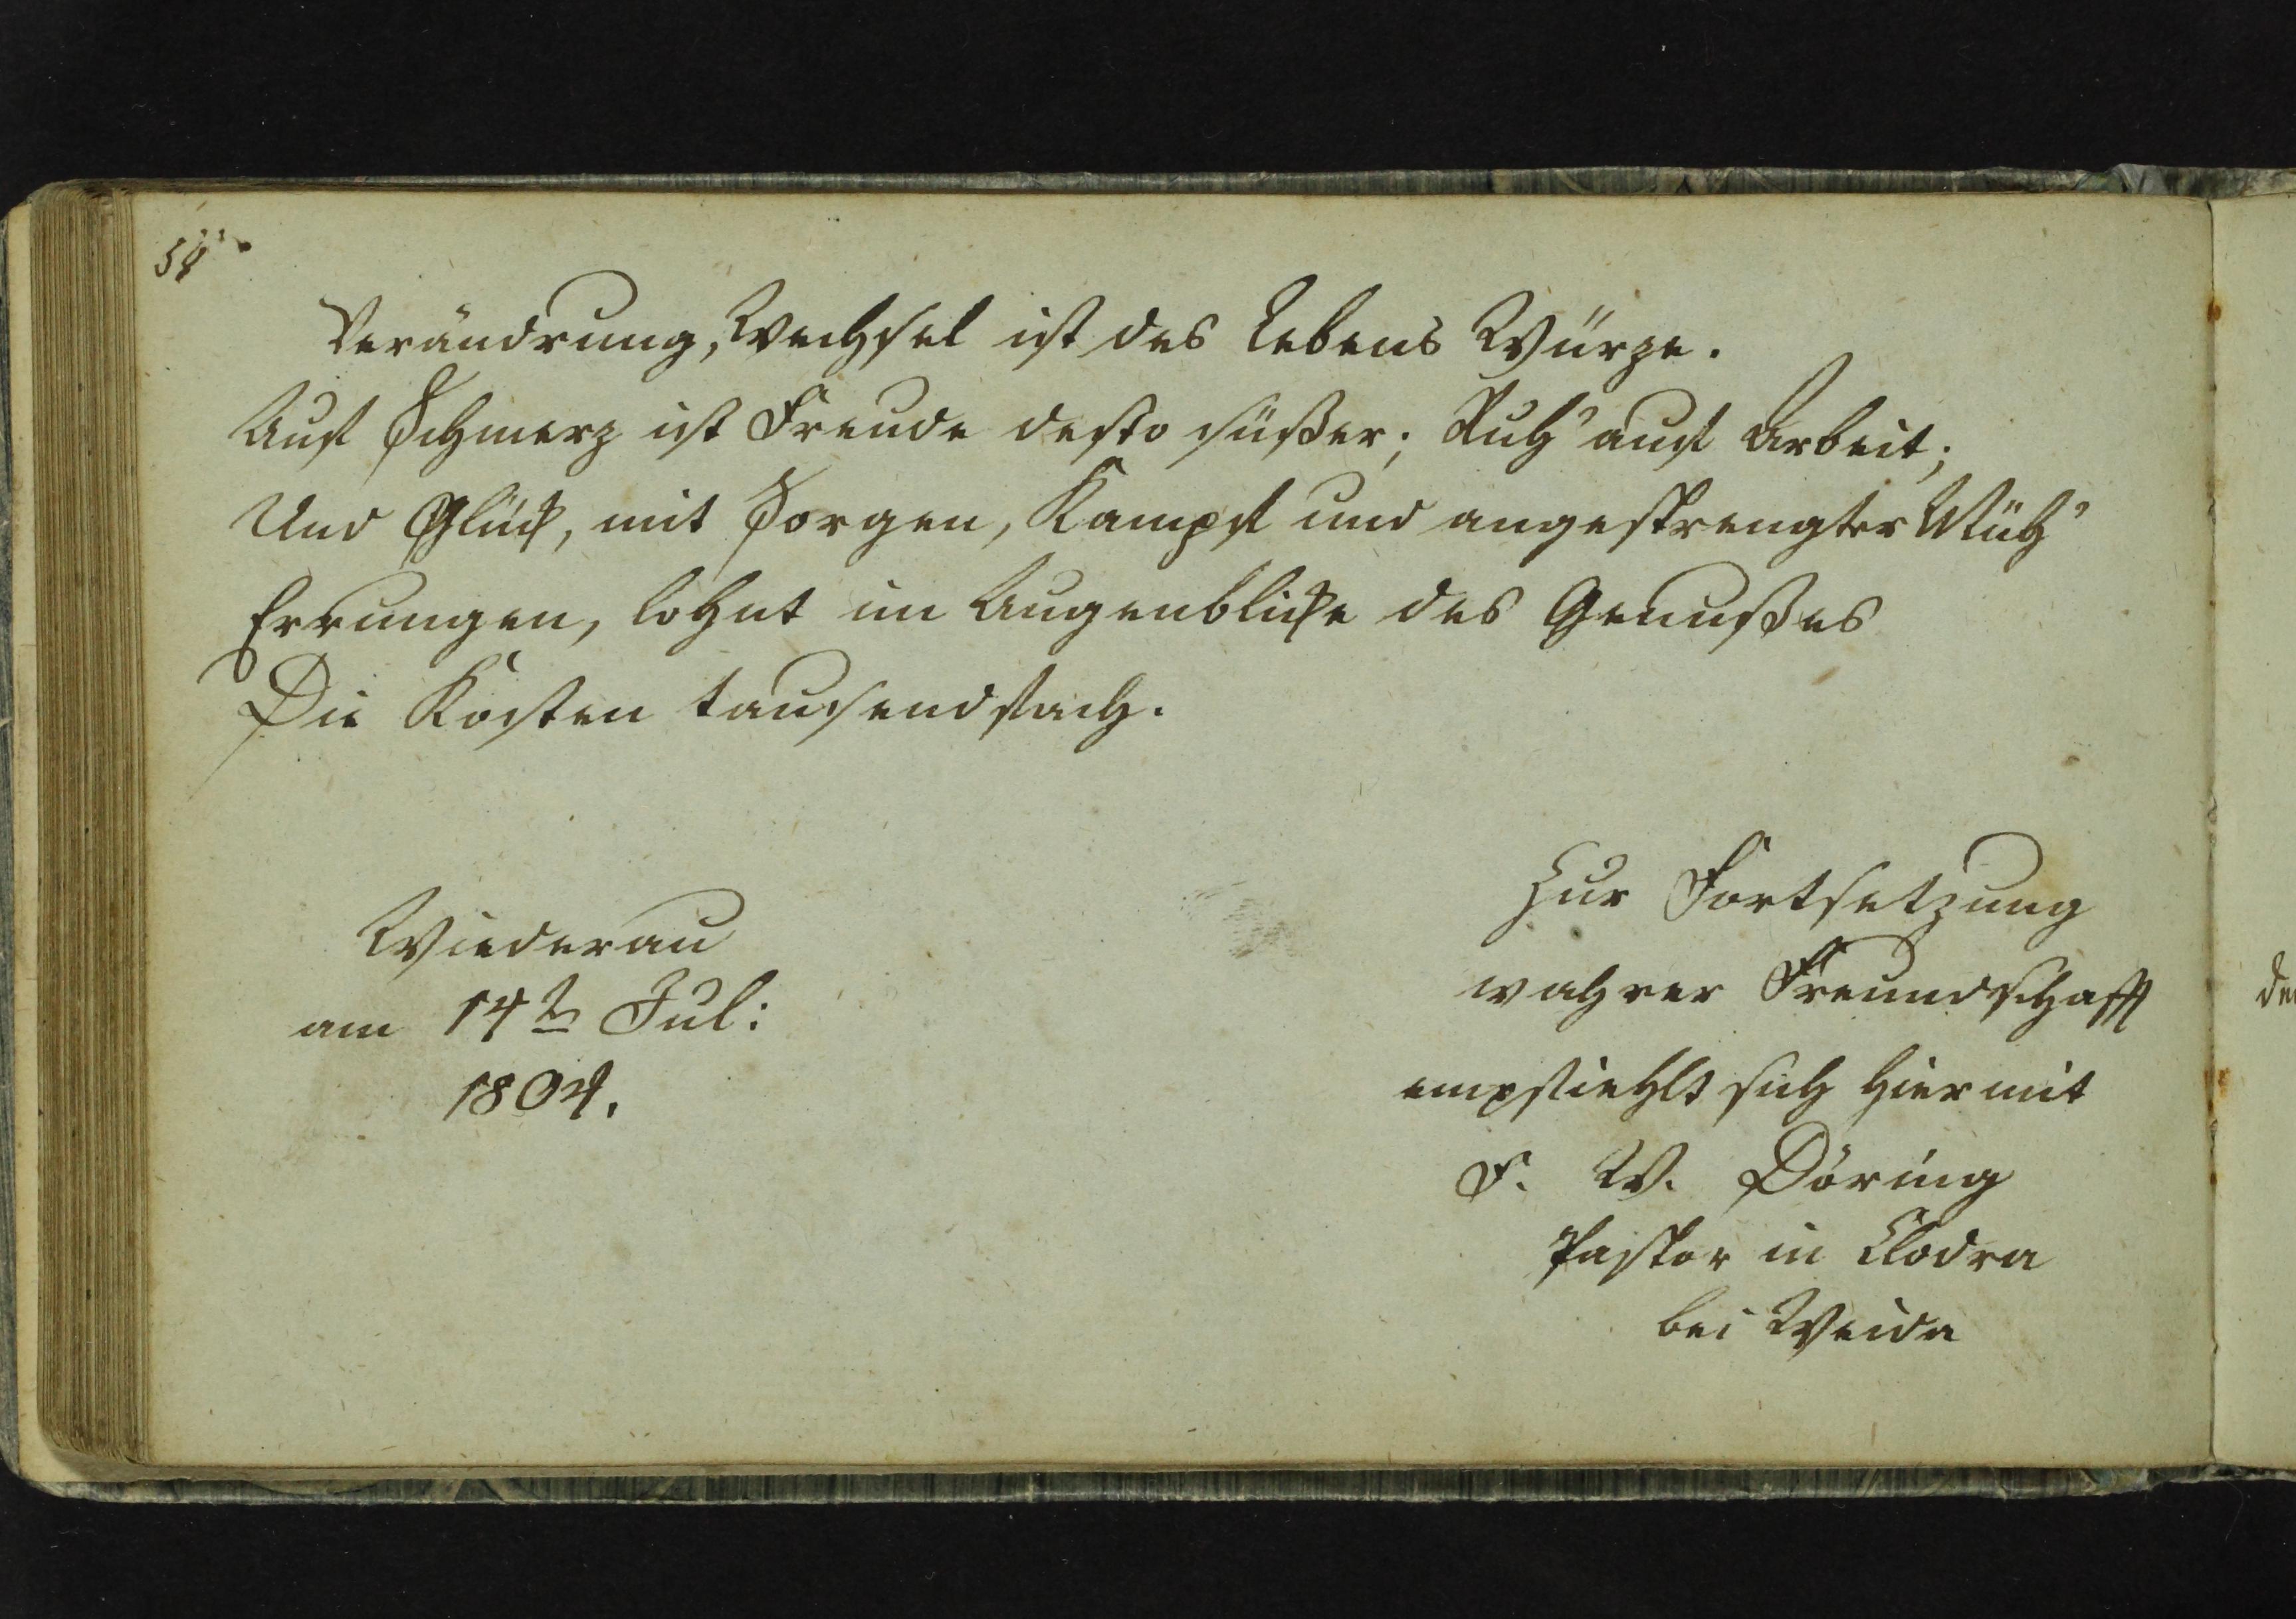 54
Verändrung, Wechsel ist des Lebens Würze.
Auf Schmerz ist Freude desto süßer; Ruh' auf Arbeit;
Und Glück, mit Sorgen, Kampf und angestrengter Müh'
Errungen, lohnt im Augenblicke des Genußes
Die Kosten tausendfach.
Wiederau
am 14t Jul:
1804.
Zur Fortsetzung
wahrer Freundschafft
empfiehlt sich hiermit
F. W. Döring
Pastor in Clodra
bei Weida